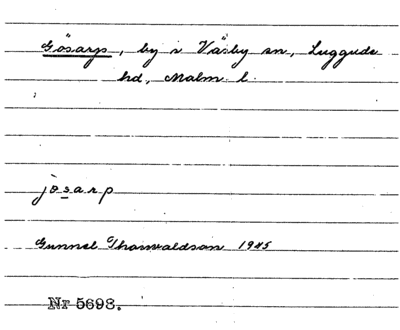 Gösarps, by i Väsby sn, Luggude
hd, Malm. l.
jösarp
Gunnel Thorwaldson 1945
Nr 5698.